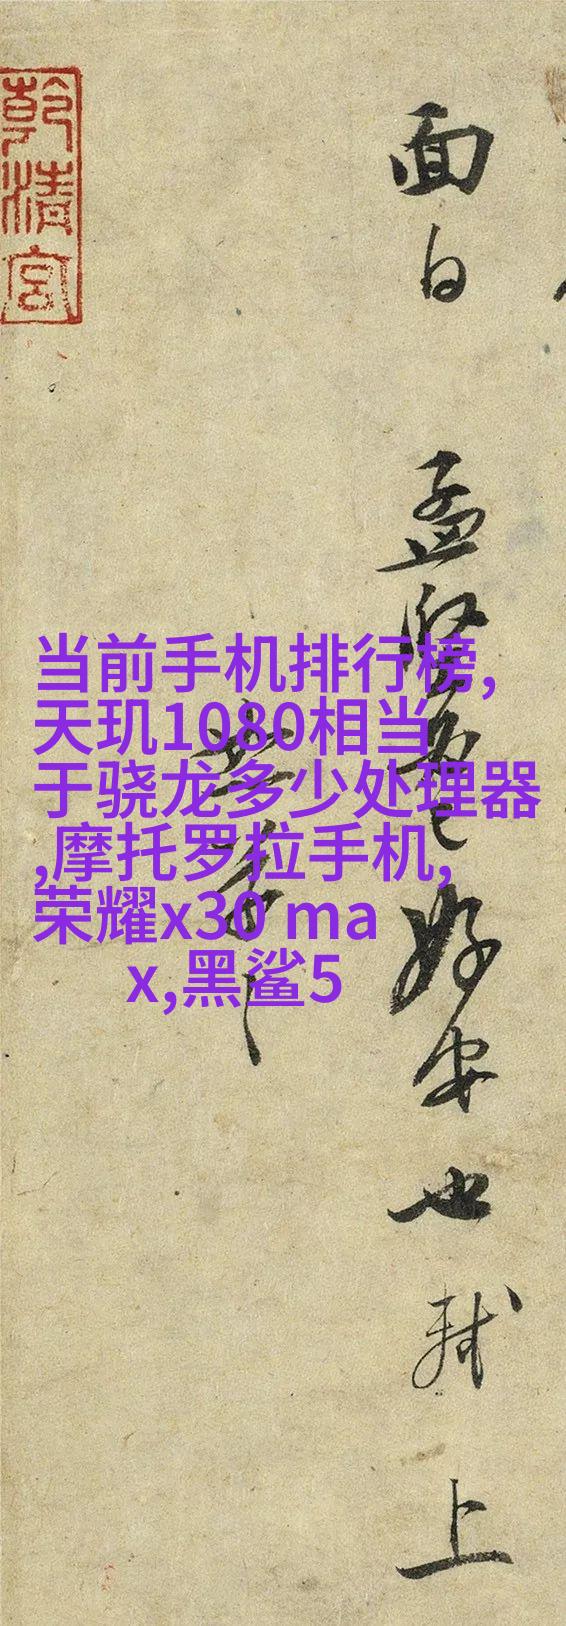 面白 孟堅 好安也 軾上
乾清宮
当前手机排行榜,
天玑1080相当
于骁龙多少处理器
,摩托罗拉手机,
荣耀x30 ma
x,黑鲨5